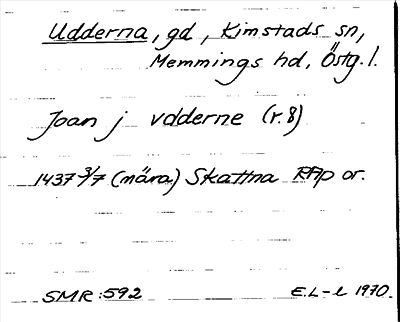 Udderna, gd, Kimstads sn,
Memmings hd, Östg. l.
Joan j vdderne (r. 8)
1437 3/7 (nära) Skattna RAp or.
SMR:592 E.L-l 1970.